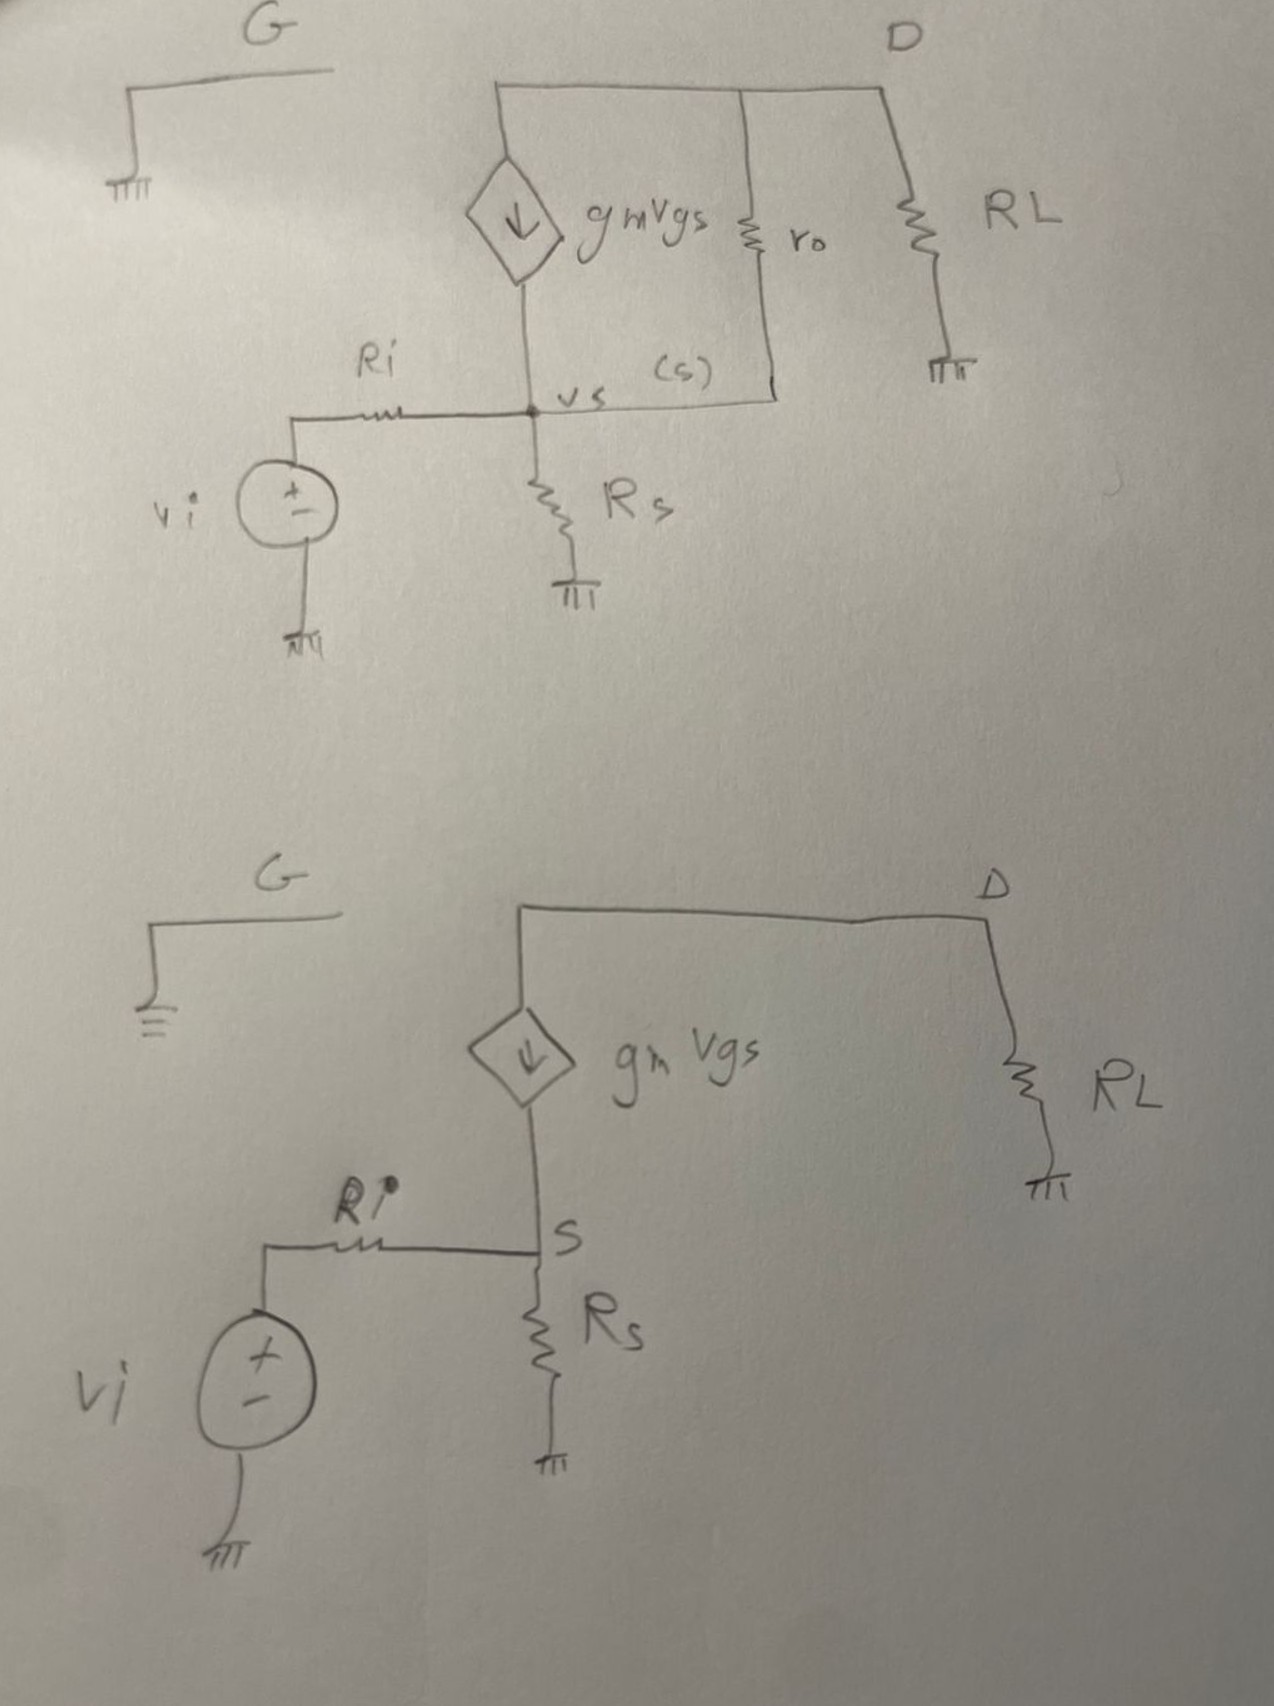 G
D
gmvgs
ro
RL
Ri
vs
(s)
vi
+
-
Rs
G
D
gm Vgs
RL
Ri
S
Rs
Vi
+
-